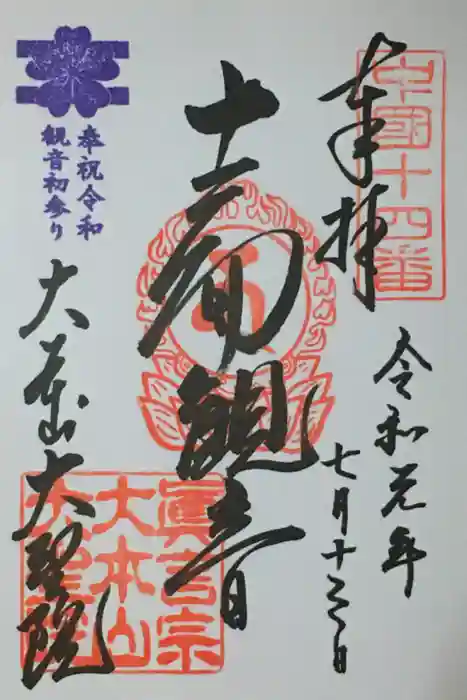 中国十四番
奉拝
令和元年
七月十三日
十一面観音
眞言宗
大本山
大聖院
奉祝令和
観音初参り
大本山大聖院